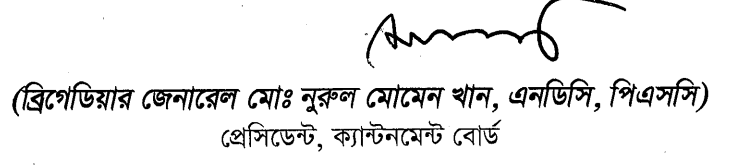 (ব্রিগেডিয়ার জেনারেল মোঃ নুরুল মোমেন খান, এনডিসি, পিএসসি)
প্রেসিডেন্ট, ক্যান্টনমেন্ট বোর্ড